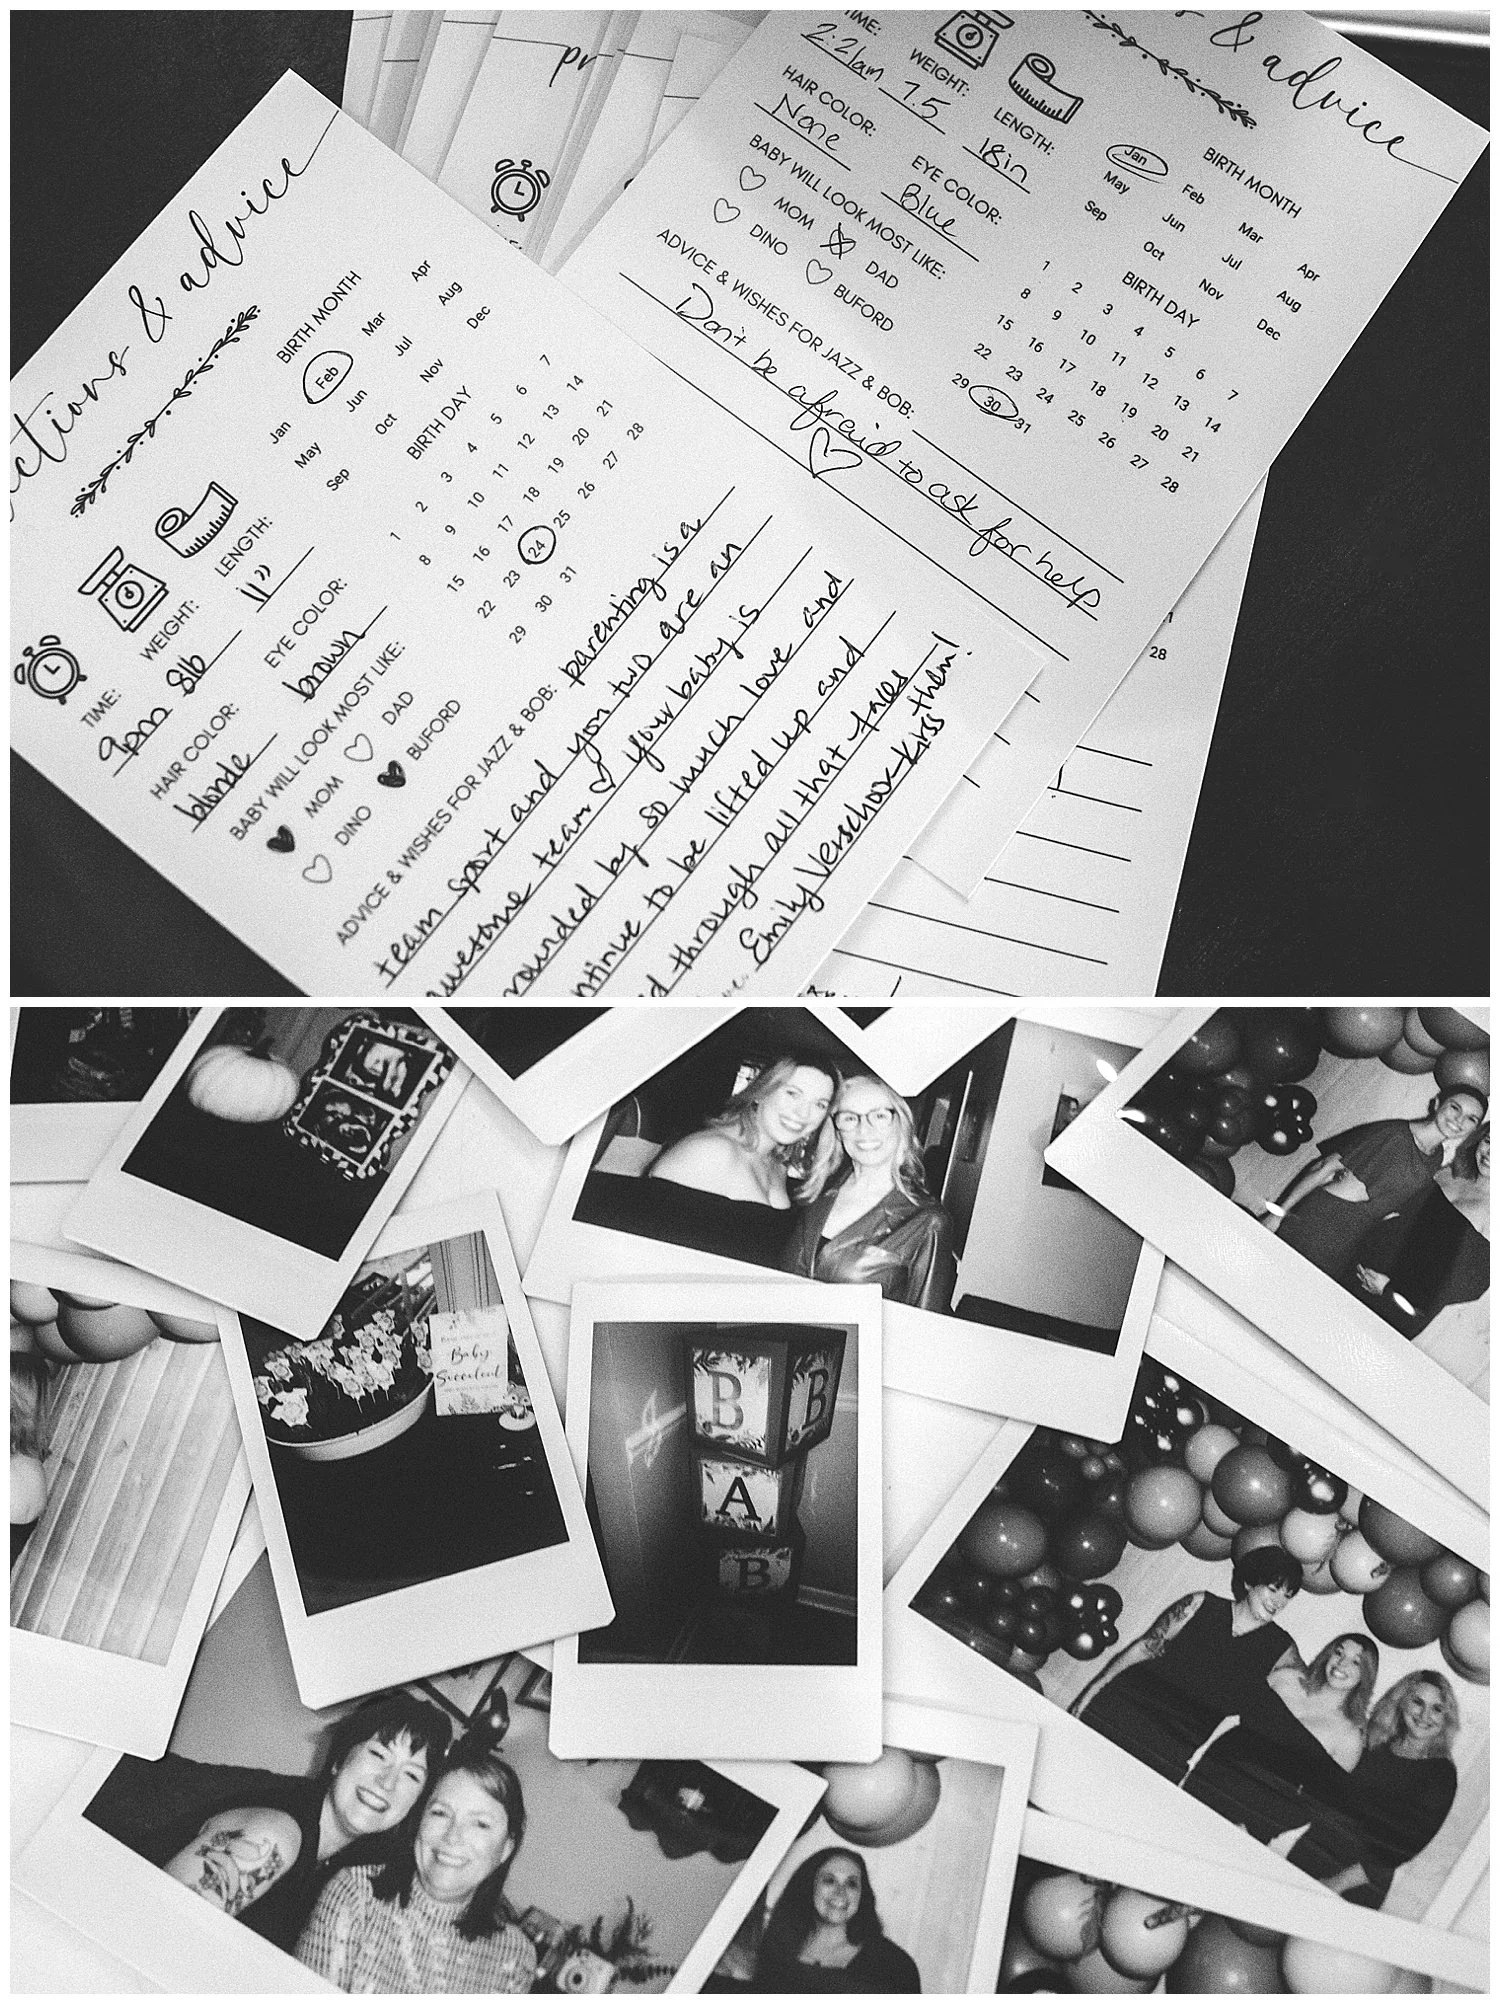 pr
& advice
BIRTH MONTH
Jan Feb Mar Apr
May Jun Jul Aug
Sep Oct Nov Dec
BIRTH DAY
1 2 3 4 5 6 7
8 9 10 11 12 13 14
15 16 17 18 19 20 21
22 23 24 25 26 27 28
29 30 31
LENGTH: 11"
WEIGHT: 8lb
TIME: 9pm
EYE COLOR: brown
HAIR COLOR: blonde
BABY WILL LOOK MOST LIKE:
MOM DAD
DINO BUFORD
ADVICE & WISHES FOR JAZZ & BOB: parenting is a
team sport and you two are an
awesome team your baby is
rounded by so much love and
ntinue to be lifted up and
d through all that takes
Emily Verschoor-Kirss them!
& advice
TIME: 2:21am
WEIGHT: 7.5
LENGTH: 18in
HAIR COLOR: None
EYE COLOR: Blue
BABY WILL LOOK MOST LIKE:
MOM DAD
DINO BUFORD
ADVICE & WISHES FOR JAZZ & BOB:
Don't be afraid to ask for help
BIRTH MONTH
Jan Feb Mar Apr
May Jun Jul Aug
Sep Oct Nov Dec
BIRTH DAY
1 2 3 4 5 6 7
8 9 10 11 12 13 14
15 16 17 18 19 20 21
22 23 24 25 26 27 28
29 30 31
28
Baby
Succulent
B B
A
B